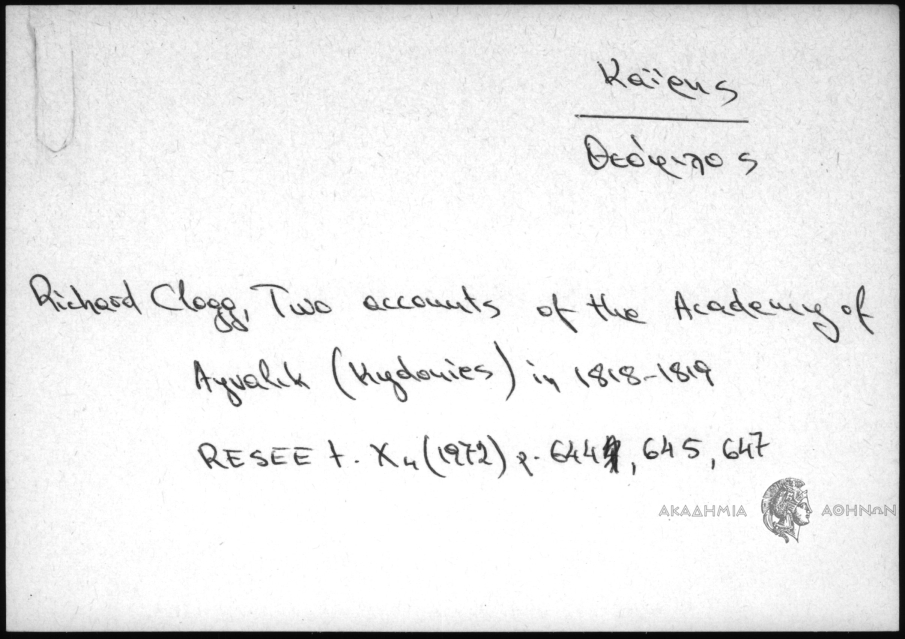 Καΐρης
Θεόφιλος
Richard Clogg, Two accounts of the Academy of
Ayvalik (Kydonies) in 1818-1819
RESEE t. X4 (1972) p. 644, 645, 647
ΑΚΑΔΗΜΙΑ ΑΘΗΝΩΝ